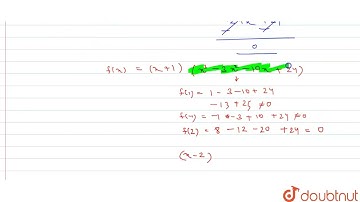 0
f(x) = (x+1) (x³ - 3x² - 10x + 24)
f(1) = 1 - 3 - 10 + 24
- 13 + 25 ≠0
f(-1) = -1 - 3 + 10 + 24 ≠0
f(2) = 8 - 12 - 20 + 24 = 0
(x-2)
doubtnut